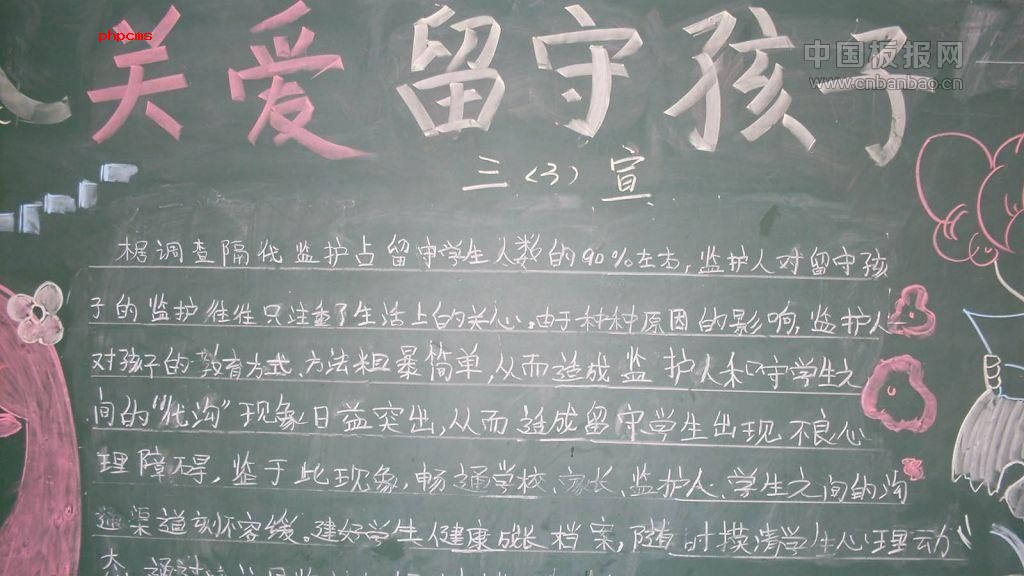 phpcms
关爱留守孩子
中国板报网
www.cnbanbao.cn
三(3)宣
据调查隔代监护占留守学生人数的90%左右,监护人对留守孩
子的监护往往只注重了生活上的关心。由于种种原因的影响,监护人
对孩子的教育方式、方法粗暴简单,从而造成监护人和守学生之
间的“代沟”现象日益突出,从而造成留守学生出现不良心
理障碍,鉴于此现象,畅通学校、家长、监护人、学生之间的沟
通渠道刻不容缓。建好学生健康成长档案,随时摸清学生心理动
态,通过